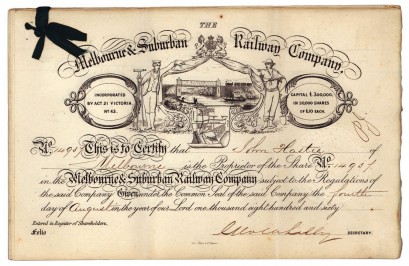 THE
Melbourne & Suburban Railway Company,
INCORPORATED
BY ACT 21 VICTORIA
Nº 43.
CAPITAL £300,000,
IN 30,000 SHARES
OF £10 EACH.
Nº 14951 This is to Certify that John Hastie of
Melbourne is the Proprietor of the Share Nº 14951
in the Melbourne & Suburban Railway Company subject to the Regulations of
the said Company Given under the Common Seal of the said Company the fourth
day of August in the year of our Lord one thousand eight hundred and sixty
Entered in Register of Shareholders.
Folio
SECRETARY.